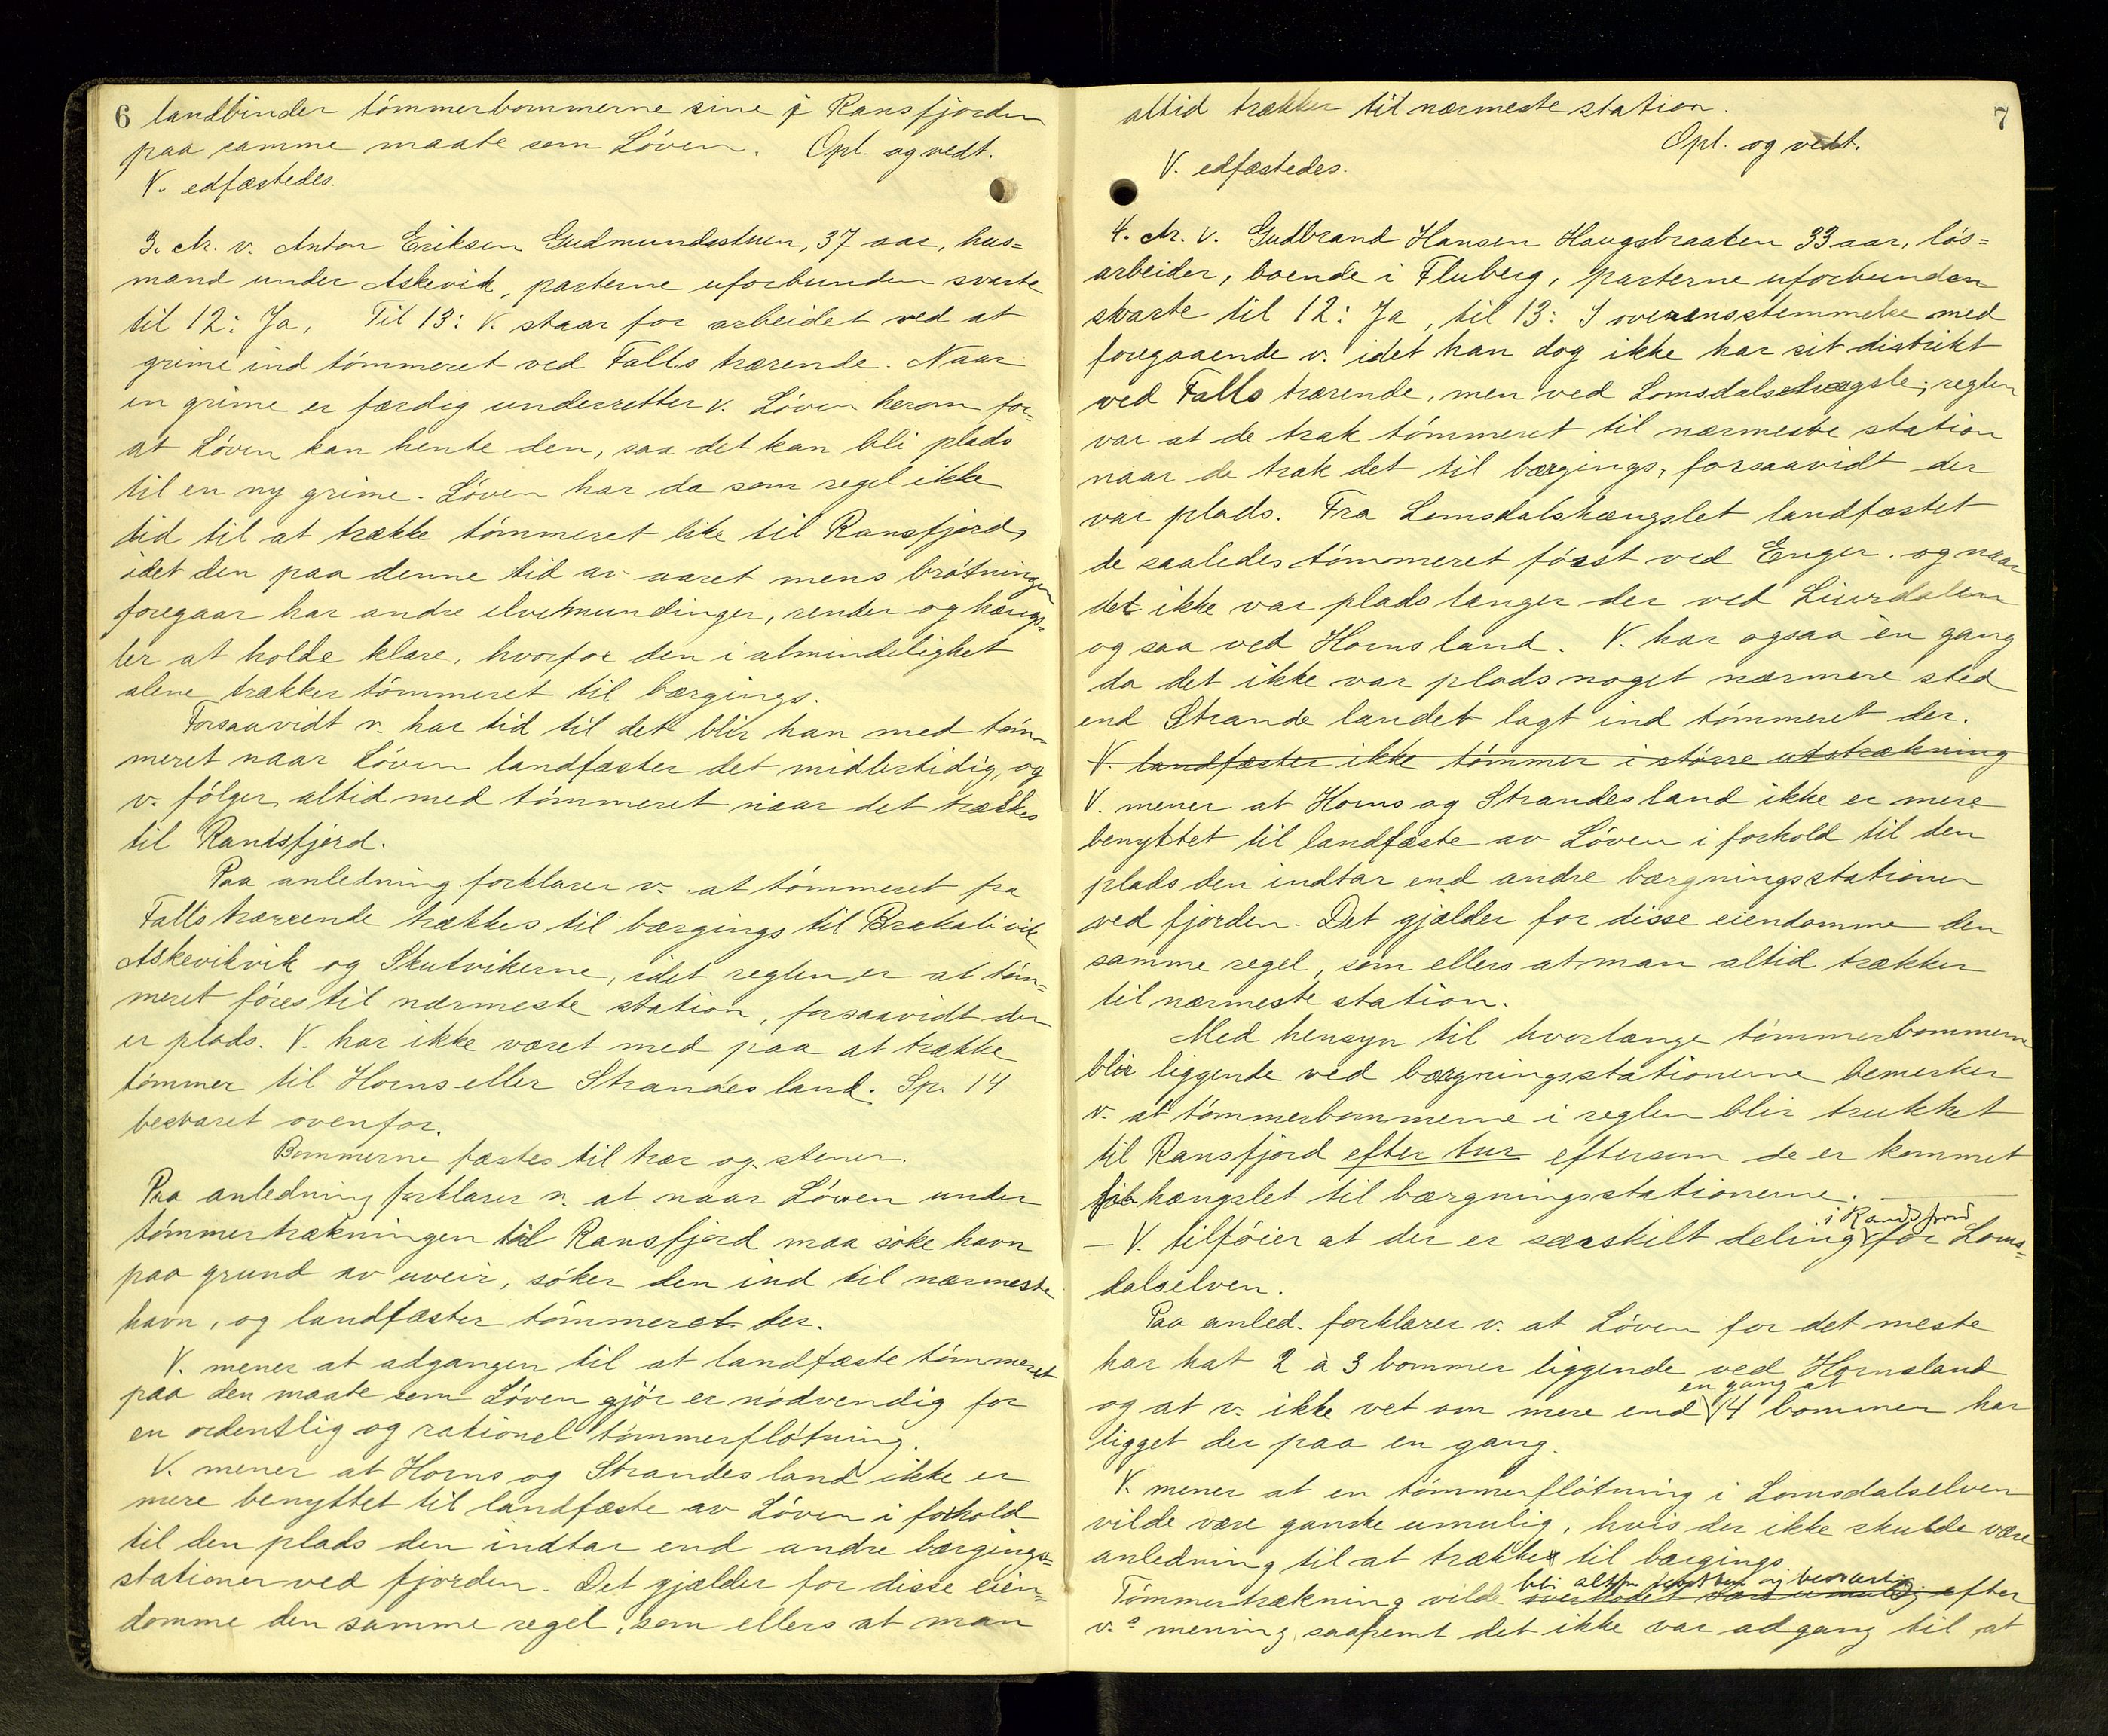 6 landbinder tömmerbommerne sine i Ransfjorden
paa samme maate som Löven. Opl. og vedt.
V. edfæstedes.
3. Nr. v. Anton Eriksen Gudmundsstuen, 37 aar, hus=
mand under Askevik, parterne uforbunden svarte
til 12: Ja, Til 13: V. staar for arbeidet ved at
grime ind tömmeret ved Falls trærende. Naar
en grime er færdig underretter v. Löven herom for=
at Löven kan hente den, saa det kan bli plads
til en ny grime. Löven har da som regel ikke
tid til at trække tömmeret like til Ransfjord,
idet den paa denne tid av aaret mens brötningen
foregaar har andre elvemundinger, render og hængs=
ler at holde klare, hvorfor den i almindelighet
alene trækker tömmeret til bærgings.
Forsaavidt v. har tid til det blir han med töm=
meret naar Löven landfæster det midlertidig, og
v. fölger altid med tömmeret naar det trækkes
til Randsfjord.
Paa anledning forklarer v. at tömmeret fra
Falls trærende trækkes til bærgings til Brakalivik
Askevikvik og Skutvikerne, idet reglen er at töm=
meret föres til nærmeste station, forsaavidt der
er plads. V. har ikke været med paa at trække
tömmer til Horns eller Strandes land. Sp. 14
besvaret ovenfor.
Bommerne fæstes til trær og stener.
Paa anledning forklarer v. at naar Löven under
tömmertrækningen til Ransfjord maa söke havn
paa grund av uveir, söker den ind til nærmeste
havn, og landfæster tömmeret der.
V. mener at adgangen til at landfæste tömmeret
paa den maate som Löven gjör er nödvendig for
en ordentlig og rationel tömmerflötning.
V. mener at Horns og Strandes land ikke er
mere benyttet til landfæste av Löven i forhold
til den plads den indtar end andre bærgings=
stationer ved fjorden. Det gjælder for disse eien=
domme den samme regel, som ellers at man
7
altid trækker til nærmeste station.
Opl. og vedt.
V. edfæstedes.
4. Nr. v. Gudbrand Hansen Haugsbraaten 33 aar, lös=
arbeider, boende i Fluberg, parterne uforbunden
svarte til 12: Ja, til 13: I overensstemmelse med
foregaaende v. idet han dog ikke har sit distrikt
ved Falls trærende, men ved Lomsdalshængsle; reglen
var at de trak tömmeret til nærmeste station
naar de trak det til bærgings, forsaavidt der
var plads. Fra Lomsdalshængslet landfæstet
de saaledes tömmeret först ved Enger. og naar
det ikke var plads længer der ved Liurdalen
og saa ved Hornsland. V. har ogsaa én gang
da det ikke var plads noget nærmere sted
end Strande landet lagt ind tömmeret der.
V. landfæster ikke tömmer i större utstrækning
V. mener at Horns og Strandes land ikke er mere
benyttet til landfæste av Löven i forhold til den
plads den indtar end andre bærgningsstationer
ved fjorden. Det gjælder for disse eiendomme den
samme regel, som ellers at man altid trækker
til nærmeste station.
Med hensyn til hvorlænge tömmerbommerne
blir liggende ved bærgningsstationerne bemerker
v. at tömmerbommerne i reglen blir trukket
til Ransfjord efter tur eftersom de er kommet
fra hængslet til bærgningsstationerne.
— V. tilföier at der er særskilt deling i Randsfjord for Loms=
dalselven.
Paa anled. forklarer v. at Löven for det meste
har hat 2 à 3 bommer liggende ved Hornsland
og at v. ikke vet om mere end en gang at 4 bommer har
ligget der paa en gang.
V. mener at en tömmerflötning i Lomsdalselven
vilde være ganske umulig, hvis der ikke skulde være
anledning til at trække til bærgings.
Tömmertrækning vilde bli besværlig efter
v.s mening, saafremt det ikke var adgang til at